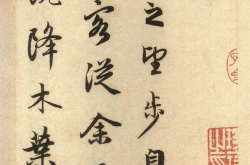 之望步自
客從余
降木葉